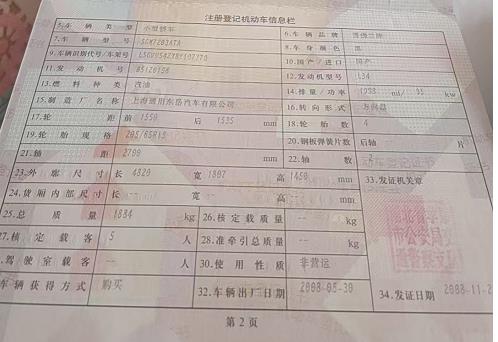 注册登记机动车信息栏
5.车辆类型 小型轿车 6.车辆品牌
7.车辆型号 8.车身颜色 黑
9.车辆识别代号/车架号 10.国产/进口 国产
11.发动机号 12.发动机型号 L34
13.燃料种类 汽油 14.排量/功率 ml/ kw
15.制造厂名称 上海通用东岳汽车有限公司 16.转向形式 方向盘
17.轮距 前 1550 后 1535 mm 18.轮胎数 4
19.轮胎规格 205/65R15 20.钢板弹簧片数 后轴 片
21.轴距 2700 mm 22.轴数
23.外廓尺寸 长 4820 宽 1807 高 1450 mm 33.发证机关章
24.货厢内部尺寸 长 宽 高 mm
25.总质量 1884 kg 26.核定载质量 -- kg
27.核定载客 5 人 28.准牵引总质量 -- kg
驾驶室载客 -- 人 30.使用性质 非营运
车辆获得方式 购买 32.车辆出厂日期 2008-05-30 34.发证日期 2008-11-2
第2页